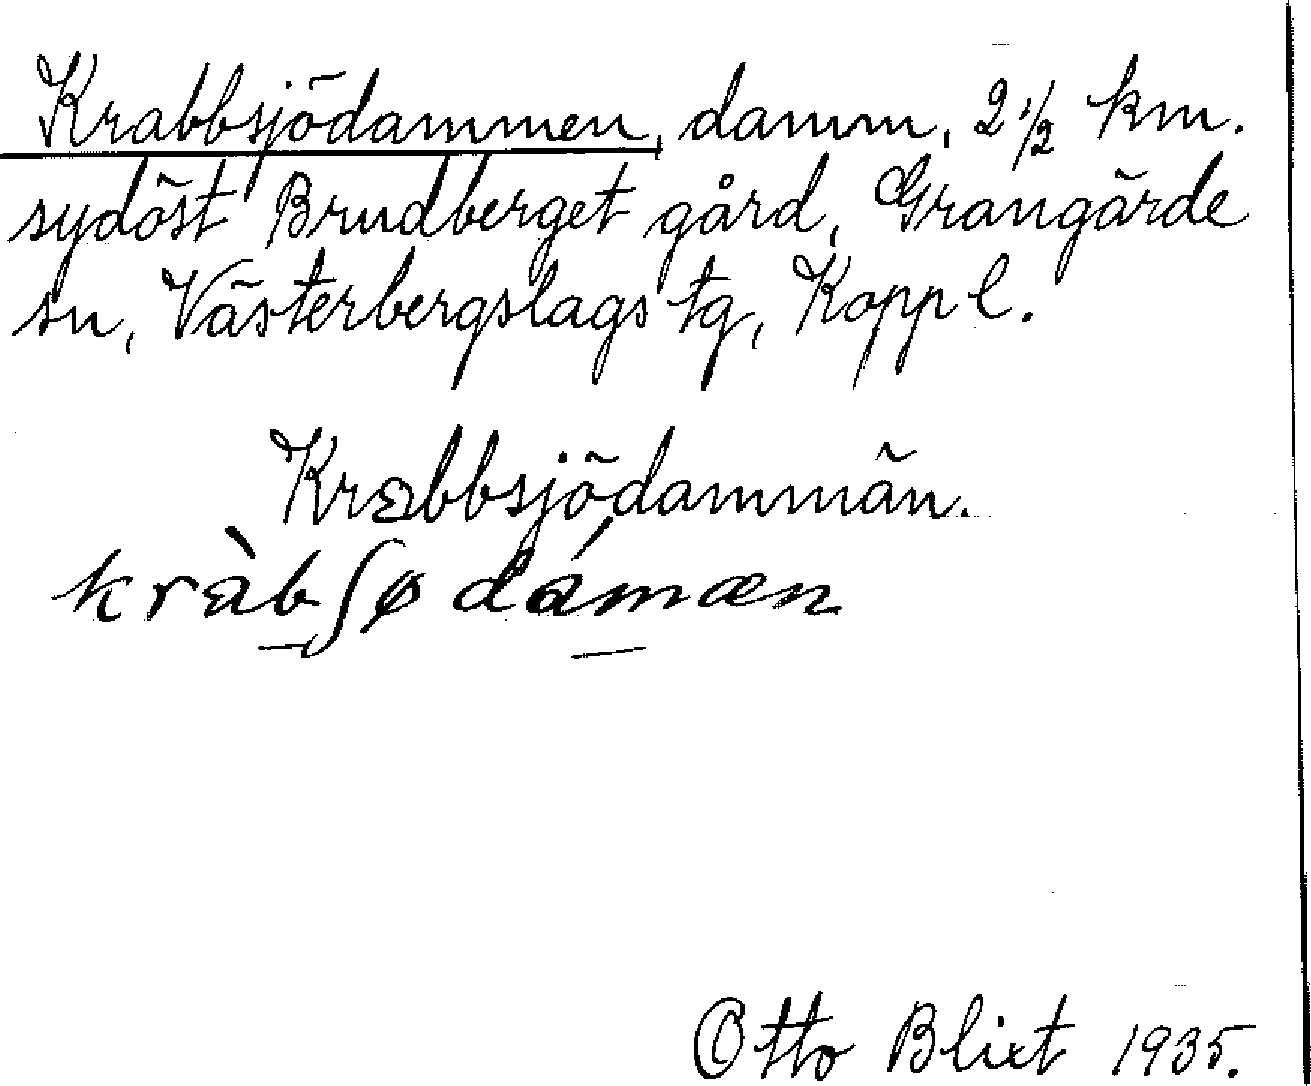 Krabbsjödammen, damm, 2 1/2 km.
sydöst Brudberget gård, Grangärde
sn, Västerbergslags tg, Kopp l.
Krabbsjödammän.
kràbʃø dámæn
Otto Blixt 1935.